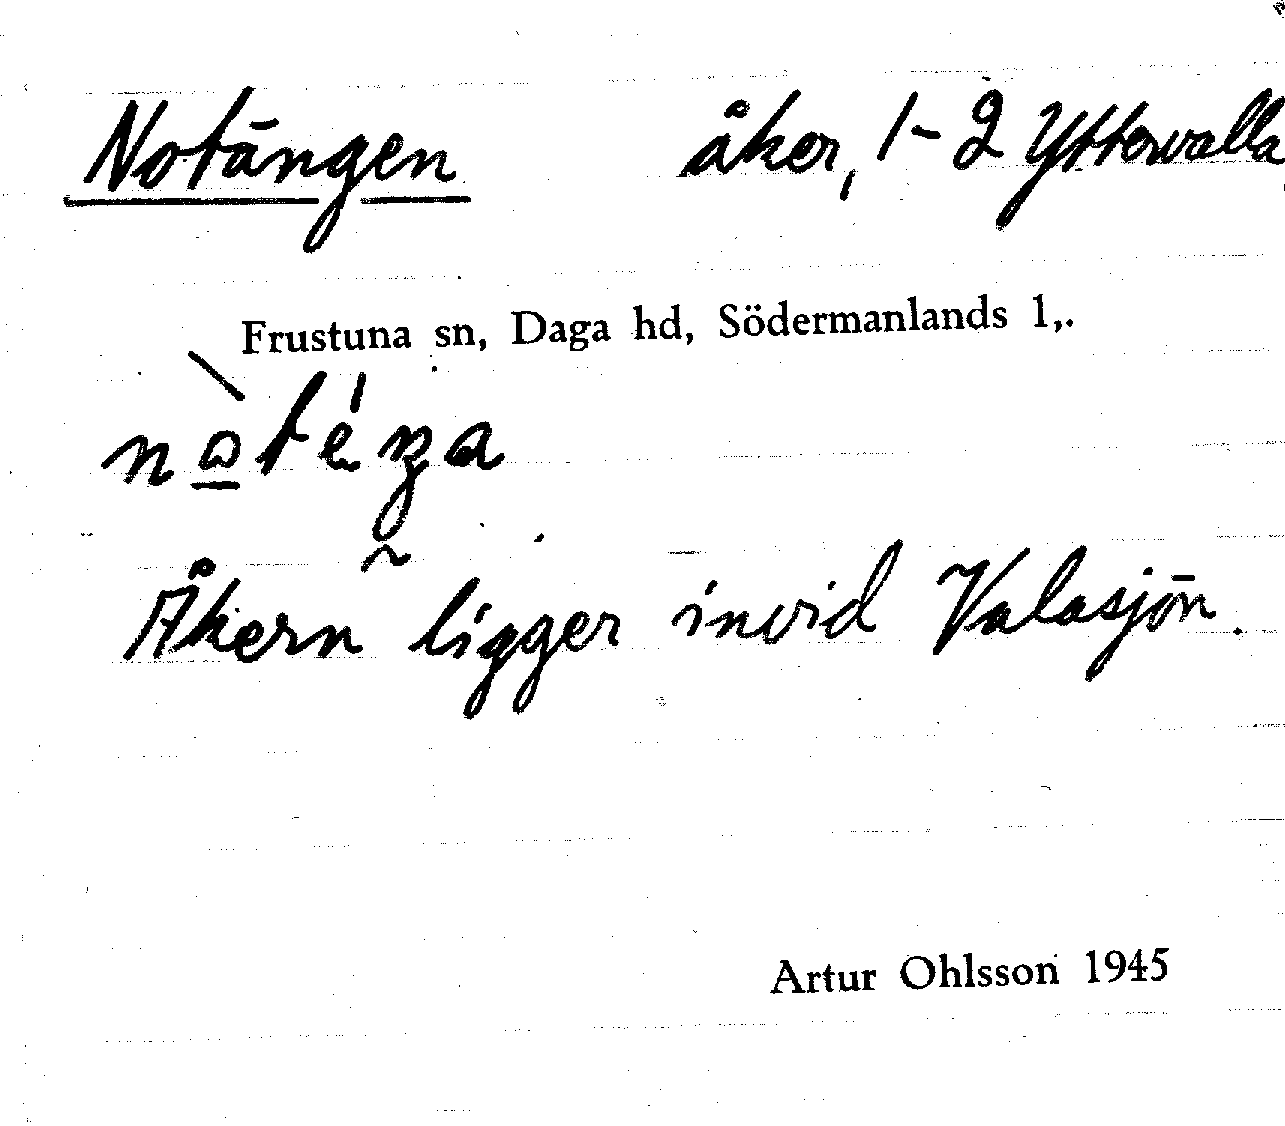 Notängen åker, 1-2 Yttervalla
Frustuna sn, Daga hd, Södermanlands l,.
Åkern ligger invid Valasjön.
Artur Ohlsson 1945